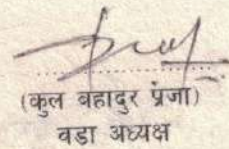 (कुल बहादुर प्रजा)
वडा अध्यक्ष